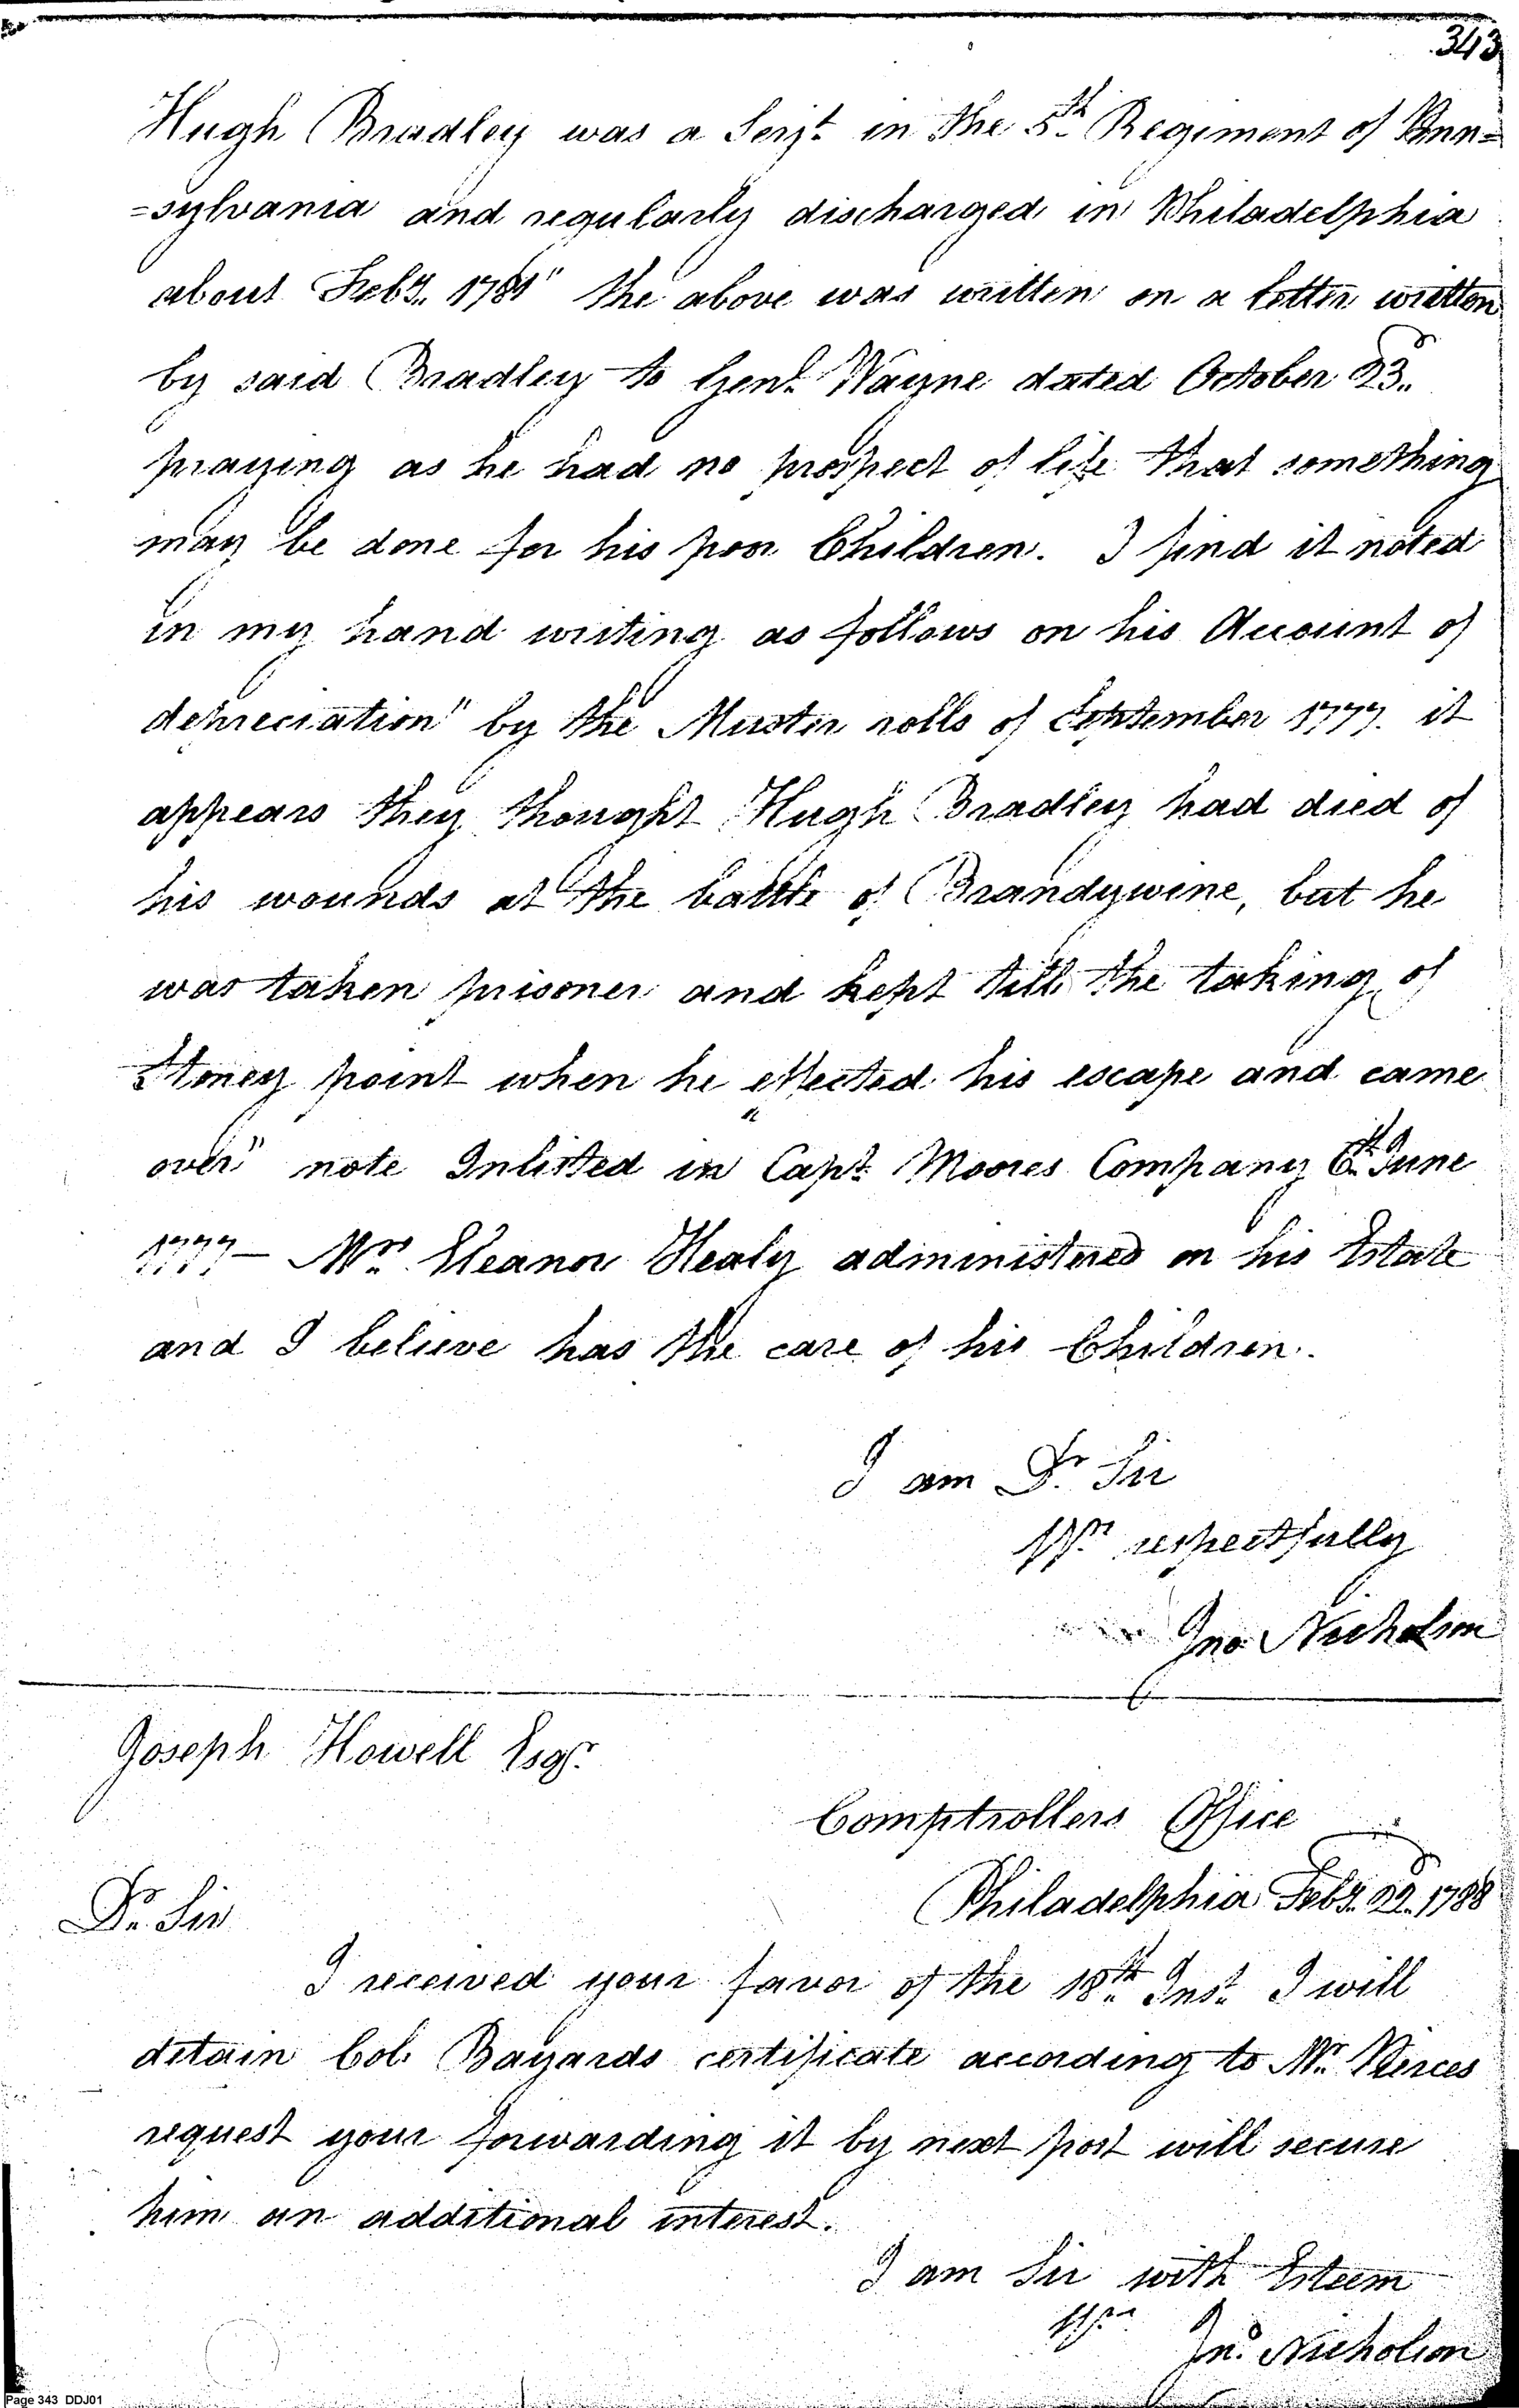 343
Hugh Bradley was a Serjt. in the 5th Regiment of Penn=
=sylvania and regularly discharged in Philadelphia
about Feby. 1781" the above was written on a letter written
by said Bradley to Genl. Wayne dated October 23d.
praying as he had no prospect of life that something
may be done for his poor Children. I find it noted
in my hand writing as follows on his Account of
depreciation" by the Muster rolls of September 1777. it
appears they thought Hugh Bradley had died of
his wounds at the battle of Brandywine, but he
was taken prisoner and kept till the taking of
Stoney point when he effected his escape and came
over" note Inlisted in Capt. Moores Company 6th June
1777— Mrs. Eleanor Healy administered on his Estate
and I believe has the care of his Children.
I am Dr. Sir
Yrs. respectfully
Jno Nicholson
Joseph Howell Esqr.
Comptrollers Office
Philadelphia Feby. 22d. 1788
Dr. Sir
I received your favor of the 18th. Inst. I will
detain Col. Bayards certificate according to Mr. Pierces
request your forwarding it by next post will secure
him an additional interest.
I am Sir with Esteem
Yrs.
Jno. Nicholson
Page 343 DDJ01